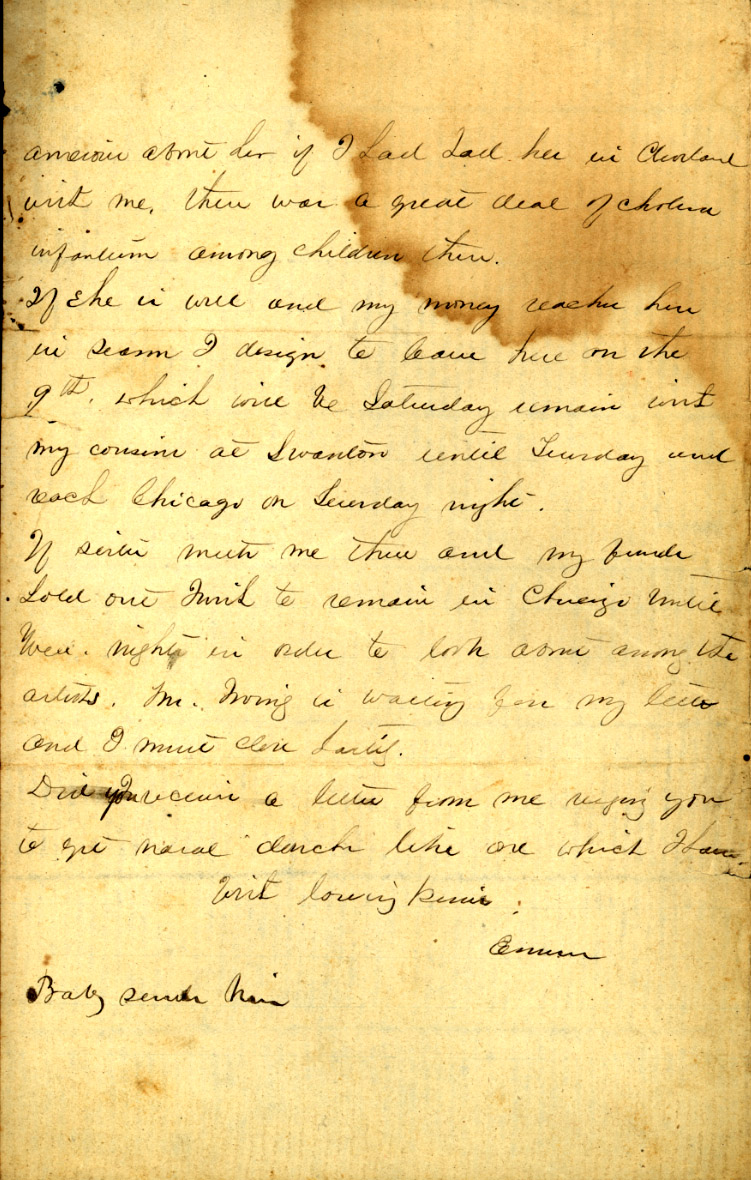 anxious about her if I had had her in Cleveland
with me. There was a great deal of cholera
infantum among children there.
If she is well and my money reaches here
in season I design to leave here on the
9th. which will be Saturday remain with
my cousins at Swanton until Tuesday and
reach Chicago on Tuesday night.
If sister meets me there and my funds
hold out I wish to remain in Chicago until
Wed. night in order to look about among the
artists. Mr. Irving is waiting for my letter
and I must close hastily.
Did you receive a letter from me urging you
to get nasal douche like one which I have
With loving kisses.
Emma
Baby sends kiss